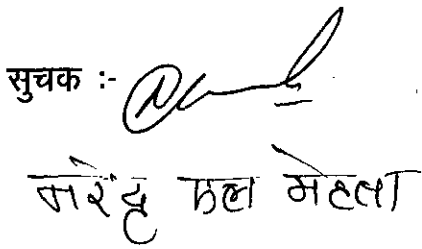 सुचक :-
नरेंद्र एल मेहता